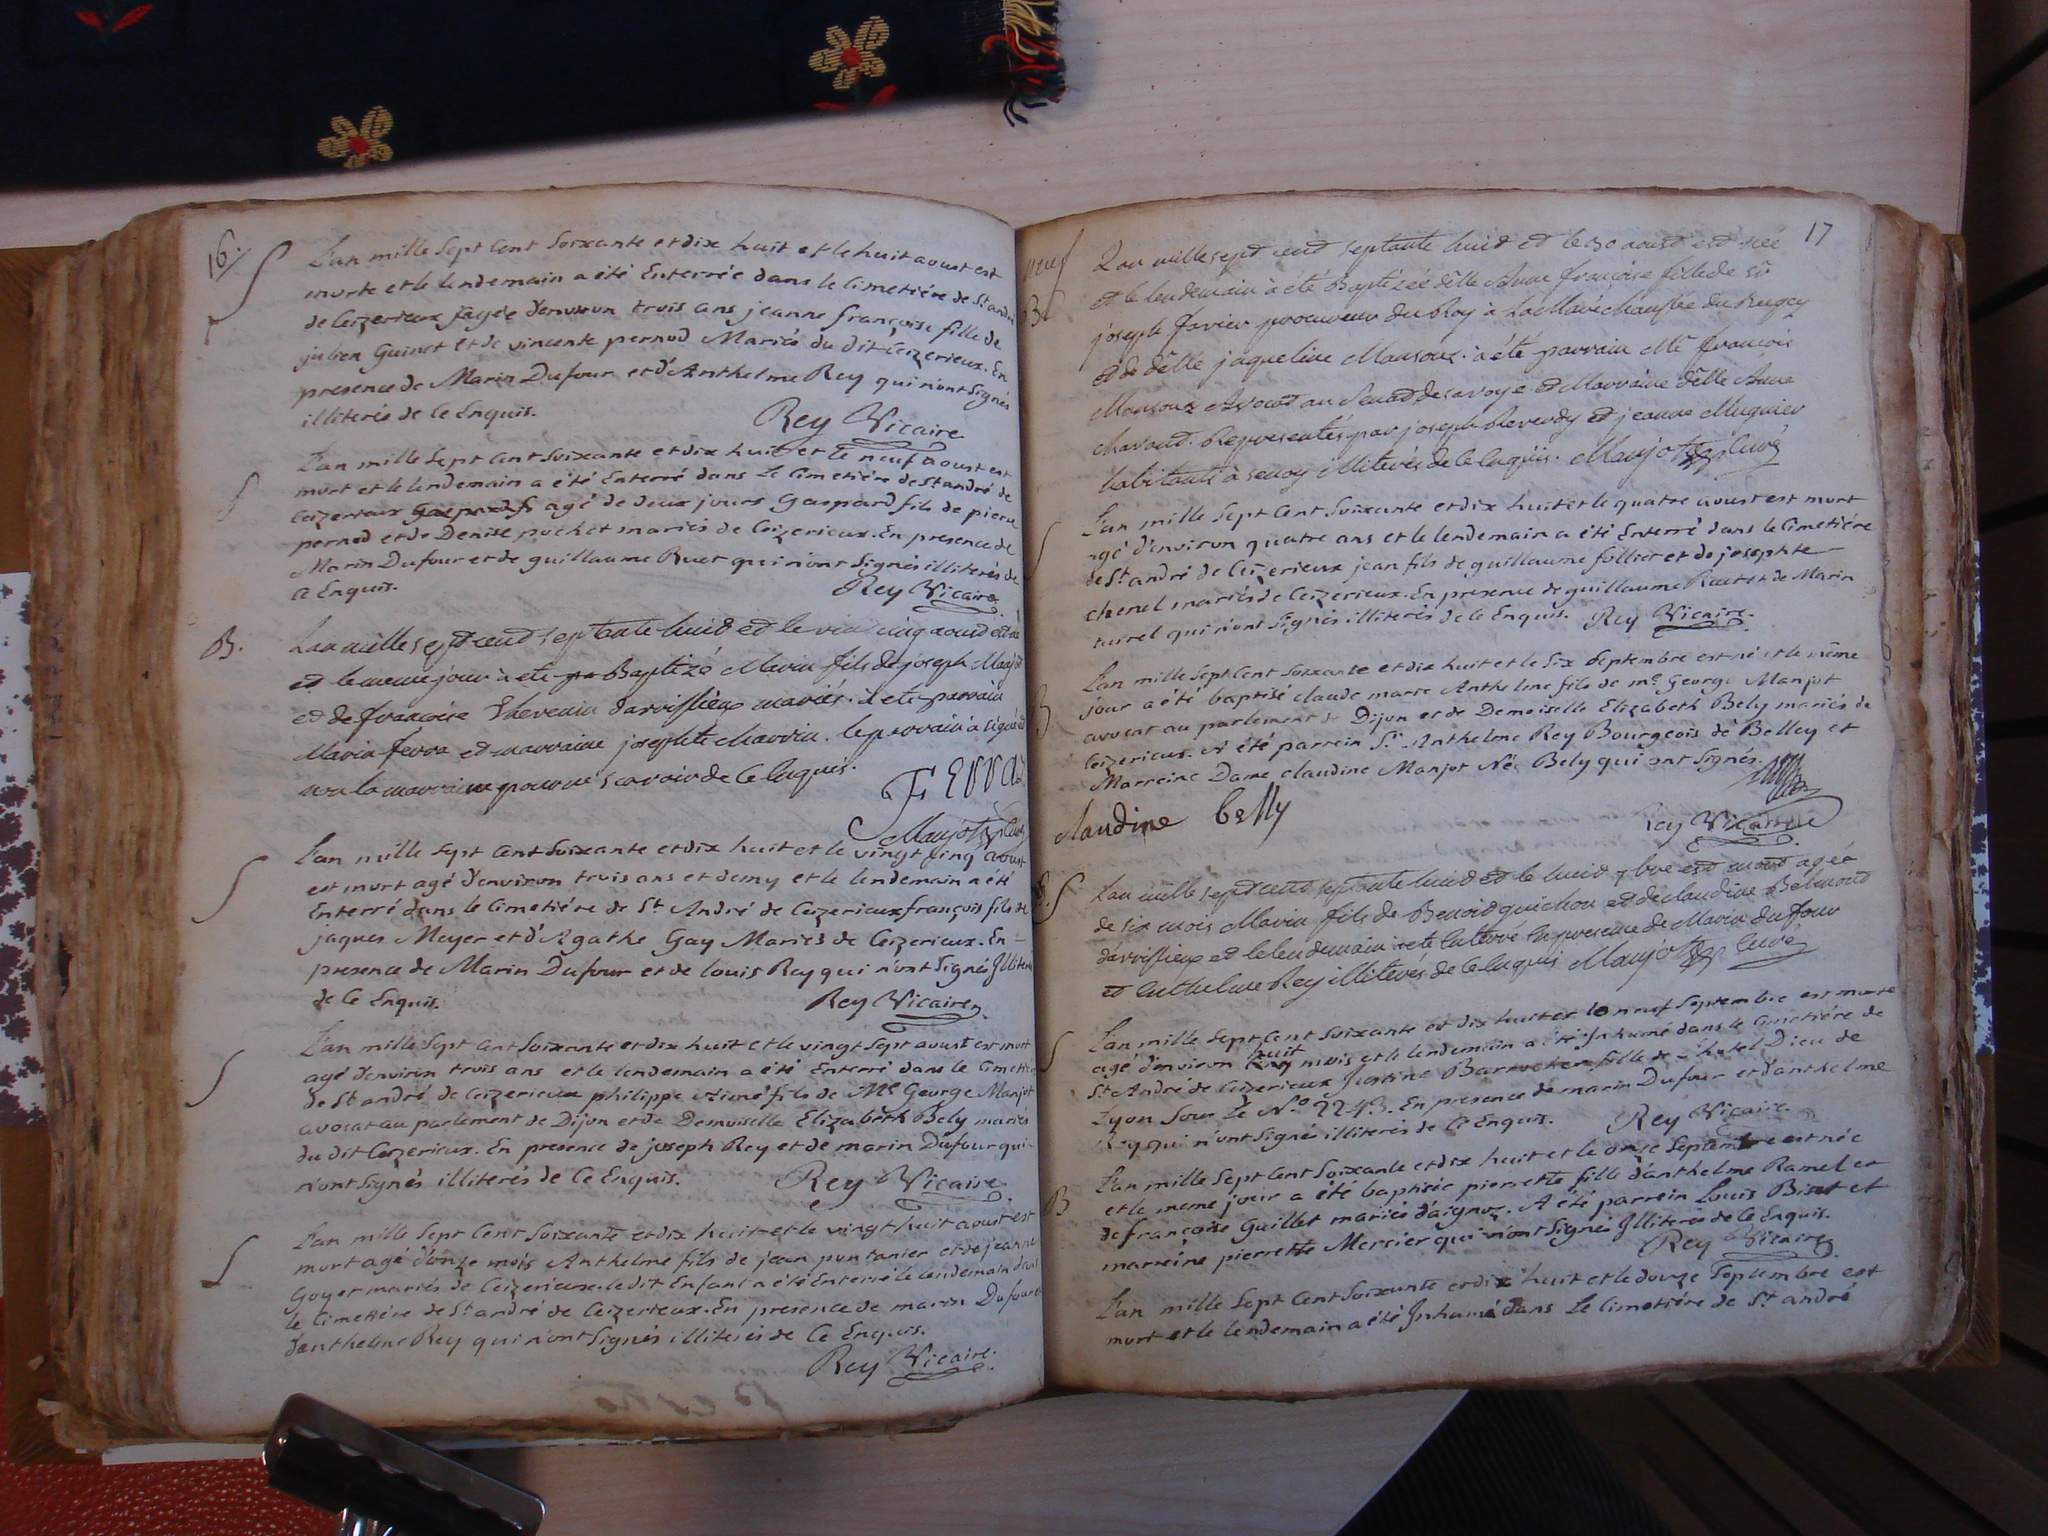 16
L'an mille Sept Cent Soixante et dix huit et le huit aoust est
morte et le lendemain a été Enterrée dans le Cimetiére de St andré
de Ceizerieux agée d'environ trois ans jeanne françoise fille de
julien Guinet et de vincente pernod Mariés du dit Ceizerieux. En
presence de Marin Dufour et d'Anthelme Rey qui n'ont Signés
illiterés de Ce Enquis.
Rey Vicaire
L'an mille Sept Cent Soixante et dix huit et le neuf aoust est
mort et le lendemain a été Enterré dans Le Cimetiére de St andré de
Ceizerieux agé de deux jours Gaspard fils de pierre
pernod et de Denise pochet mariés de Ceizerieux. En presence de
Marin Dufour et de guillaume Ruet qui n'ont Signés illiterés de
Ce Enquis.
Rey Vicaire
B.
L'an mille sept cent septante huit et le vint cinq aoust est né
et le meme jour à ete Baptizé Marin fils de joseph Manjot
et de françoise Thevenin d'arvissieux mariés. à ete parrain
Marin ferra et marraine josephte Marrin. le parrain à signé
non la marraine pour ne scavoir de Ce Enquis.
Ferraz
Manjot Curé
L'an mille Sept Cent Soixante et dix huit et le vingt Cinq aoust
est mort agé d'environ trois ans et demy et le lendemain a été
Enterré dans le Cimetiére de St André de Ceizerieux françois fils de
jaques Meyer et d'Agathe Gay Mariés de Ceizerieux. En
presence de Marin Dufour et de louis Rey qui n'ont Signés Illiterés
de Ce Enquis.
Rey Vicaire
L'an mille Sept Cent Soixante et dix huit et le vingt Sept aoust est mort
agé d'environ trois ans et le lendemain a été Enterré dans le Cimetiére
de St andré de Ceizerieux philippe Aimé fils de Me George Manjot
avocat au parlement de Dijon et de Demoiselle Elizabeth Bely mariés
du dit Ceizerieux. En presence de joseph Rey et de marin Dufour qui
n'ont Signés illiterés de Ce Enquis.
Rey Vicaire
L'an mille Sept Cent Soixante et dix huit et le vingt huit aoust est
mort agé d'onze mois Anthelme fils de jean pontanier et de jeanne
Goyet mariés de Ceizerieux. le dit Enfant a été Enterré le lendemain dans
le Cimetiére de St andré de Ceizerieux. En presence de marin Dufour et
d'anthelme Rey qui n'ont Signés illiterés de Ce Enquis.
Rey Vicaire
17
neuf
B
L'an mille sept cent septante huit et le 30 aoust est née
et le lendemain à été Baptizée dêlle Anne françoise fille de sr
joseph favier procureur du Roy à La Maréchaussée du Bugey
et de dêlle jaqueline Mansouz. à été parrain Me françois
Mansouz Avocat au Senat de savoye et Marraine dêlle Anne
Chavoud. Representés par joseph Reverdy et jeanne Mugnier
habitants à illiterés de Ce Enquis. Manjot Curé
L'an mille Sept Cent Soixante et dix huit et le quatre aoust est mort
agé d'environ quatre ans et le lendemain a été Enterré dans le Cimetiére
de St andré de Ceizerieux jean fils de guillaume follier et de josephte
chenel mariés de Ceizerieux. En presence de guillaume Ruet et de Marin
turrel qui n'ont Signés illiterés de Ce Enquis. Rey Vicaire
B
L'an mille Sept Cent Soixante et dix huit et le Six Septembre est né et le même
jour a été baptisé claude marie Anthelme fils de me George Manjot
avocat au parlement de Dijon et de Demoiselle Elizabeth Bely mariés de
Ceizerieux. A été parrein Sr Anthelme Rey Bourgeois de Belley et
Marreine Dame claudine Manjot Née Bely qui ont Signés.
claudine belly
Rey Vicaire
L'an mille sept cent septante huit et le huit 7bre est mort agée
de six mois Marin fils de Benoit guichon et de claudine Belmont
d'arvissieux et le lendemain à eté Enterré En presence de Marin duffour
et Enthelme Rey illiterés de Ce Enquis Manjot curé
L'an mille Sept Cent Soixante et dix huit et le neuf Septembre est morte
agé d'environ huit mois et le lendemain a été Inhumé dans le Cimetiére de
St André de Ceizerieux Justine Barrocher fille de l'hotel Dieu de
Lyon Sous Le No 2243. En presence de marin Dufour et d'anthelme
Rey qui n'ont Signés illiterés de Ce Enquis. Rey Vicaire
B
L'an mille Sept Cent Soixante et dix huit et le onze Septembre est née
et le meme jour a été baptisée pierrette fille d'anthelme Ramel et
de françoise Guillet mariés d'aignoz. A été parrein Louis Biset et
marreine pierrette Mercier qui n'ont Signés Illiterés de Ce Enquis.
Rey Vicaire
L'an mille Sept Cent Soixante et dix huit et le douze Septembre est
mort et le lendemain a été Inhumé dans Le Cimetiére de St andré